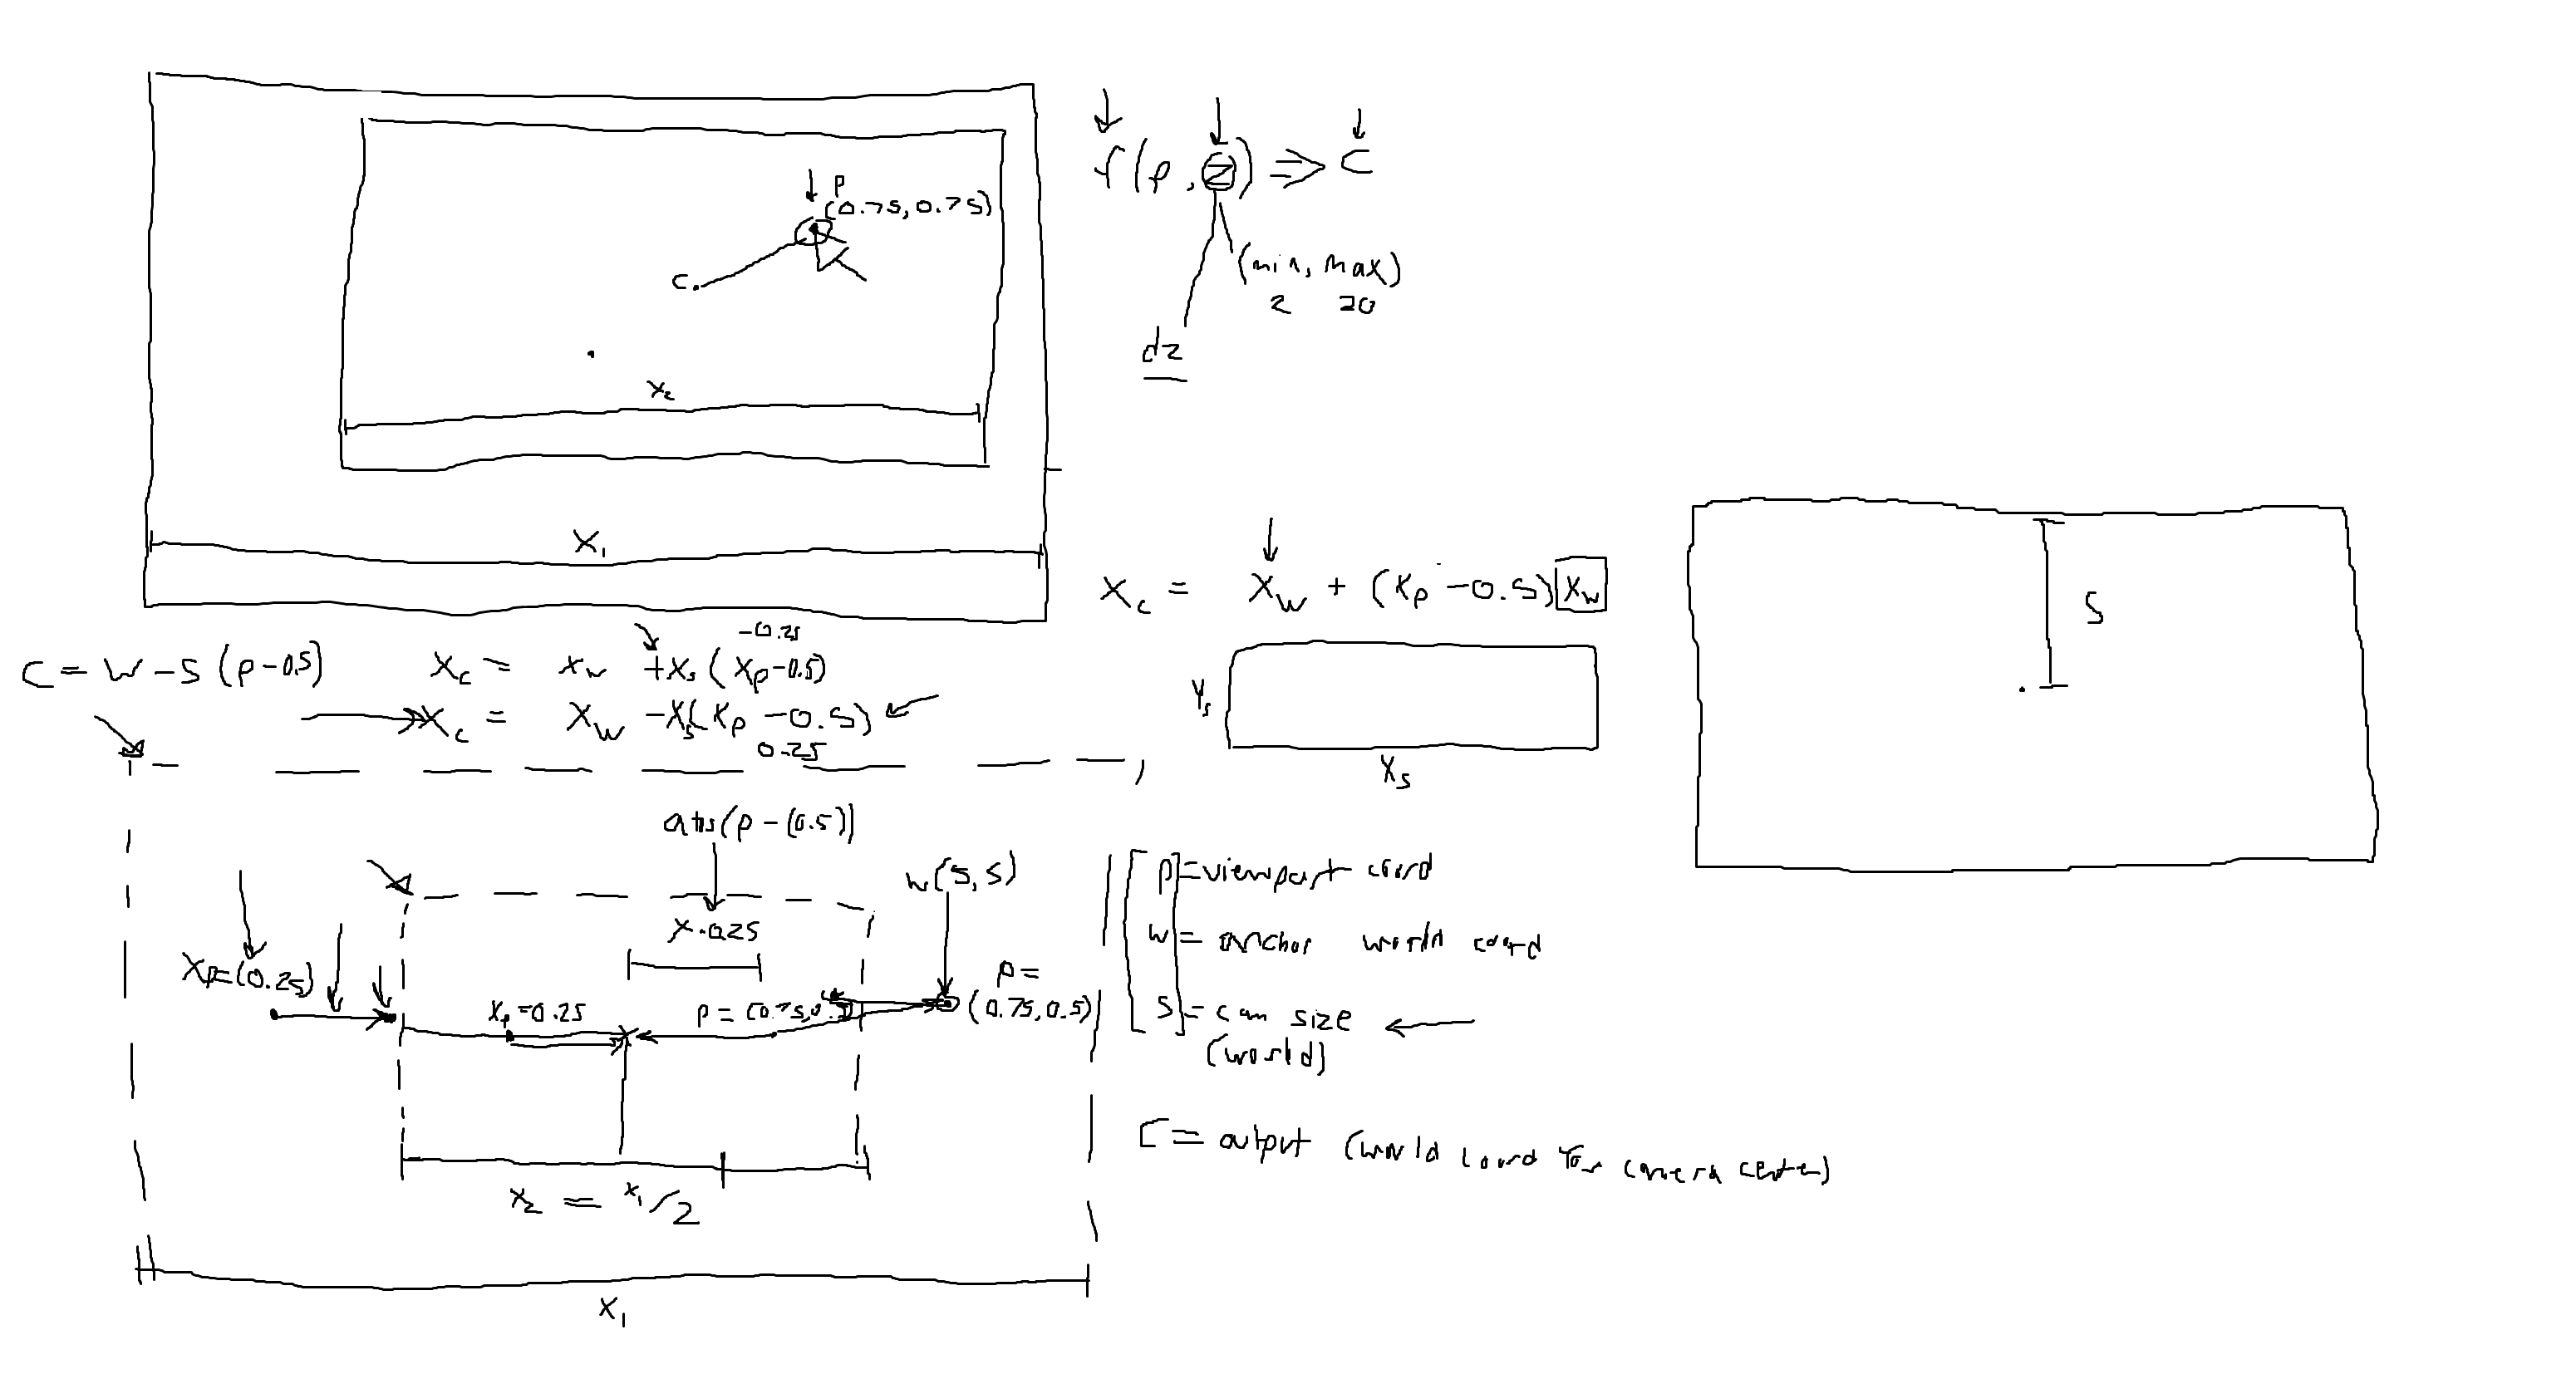 P
(0.75, 0.75)
C
x₂
X₁
f(p, z) ⇒ C
(min, max)
2 20
dz
Xc = Xw + (Xp - 0.5) Xw
S
-0.25
C = W - S (P - 0.5)
Xc = Xw + Xs (Xp - 0.5)
Xc = Xw - Xs(Xp - 0.5)
0.25
Ys
Xs
abs(P - (0.5))
w(5, 5)
X · 0.25
Xp = (0.25)
Xp = 0.25
P =
(0.75, 0.5)
x₂ = x₁/2
X₁
P = viewport coord
W = anchor world coord
S = cam size
(world)
C = output (world coord for camera center)